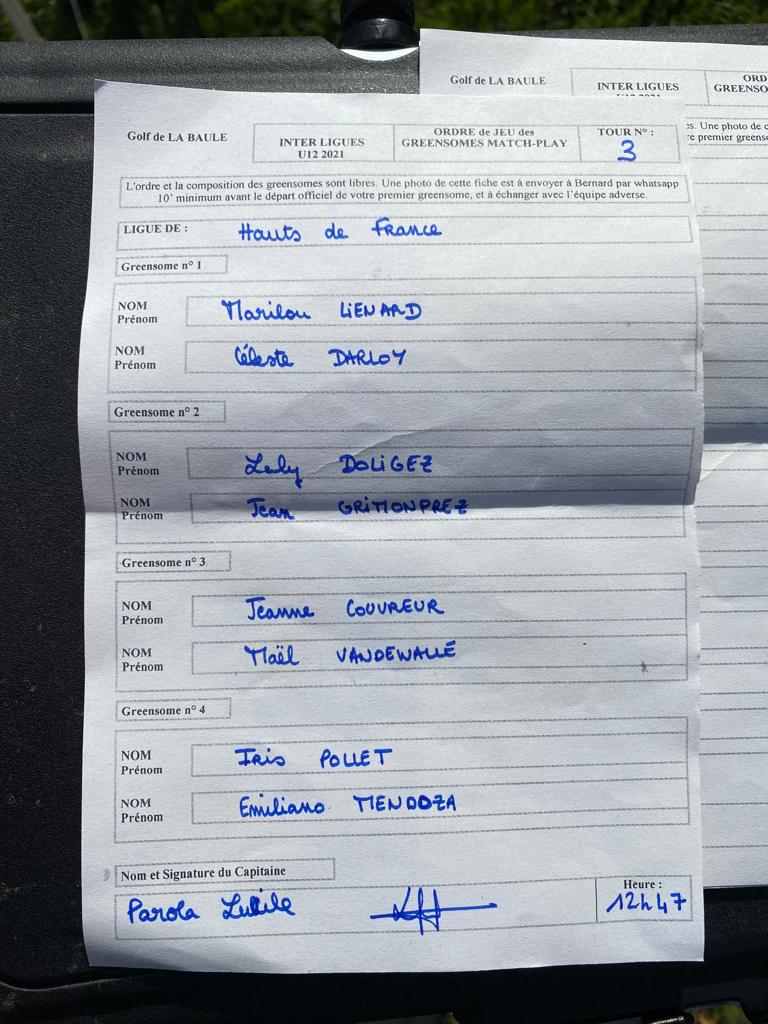 Golf de LA BAULE
INTER LIGUES
U12 2021
ORDRE de JEU des
GREENSOMES MATCH-PLAY
TOUR N° :
3
L'ordre et la composition des greensomes sont libres. Une photo de cette fiche est à envoyer à Bernard par whatsapp
10' minimum avant le départ officiel de votre premier greensome, et à échanger avec l'équipe adverse.
LIGUE DE : Hauts de France
Greensome n° 1
NOM
Prénom
Marilou LIENARD
NOM
Prénom
Céleste DARLOY
Greensome n° 2
NOM
Prénom
Lely DOLIGEZ
NOM
Prénom
Jean GRIMONPREZ
Greensome n° 3
NOM
Prénom
Jeanne COUVREUR
NOM
Prénom
Maël VANDEWALLE
Greensome n° 4
NOM
Prénom
Iris POLLET
NOM
Prénom
Emiliano MENDOZA
Nom et Signature du Capitaine
Parola Lucile
Heure :
12h47
Golf de LA BAULE
INTER LIGUES
ORD
GREENSO
s. Une photo de c
re premier greens